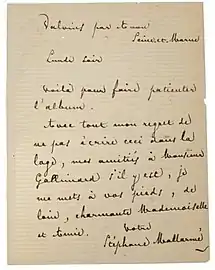 Valvins par Avon
Seine-et-Marne
Lundi soir
Voilà pour faire patienter
l'album.
Avec tout mon regret de
ne pas écrire ceci dans la
loge, mes amitiés à Monsieur
Gallimard s'il y est, je
me mets à vos pieds, de
loin, charmante Mademoiselle
et amie.
Votre
Stéphane Mallarmé